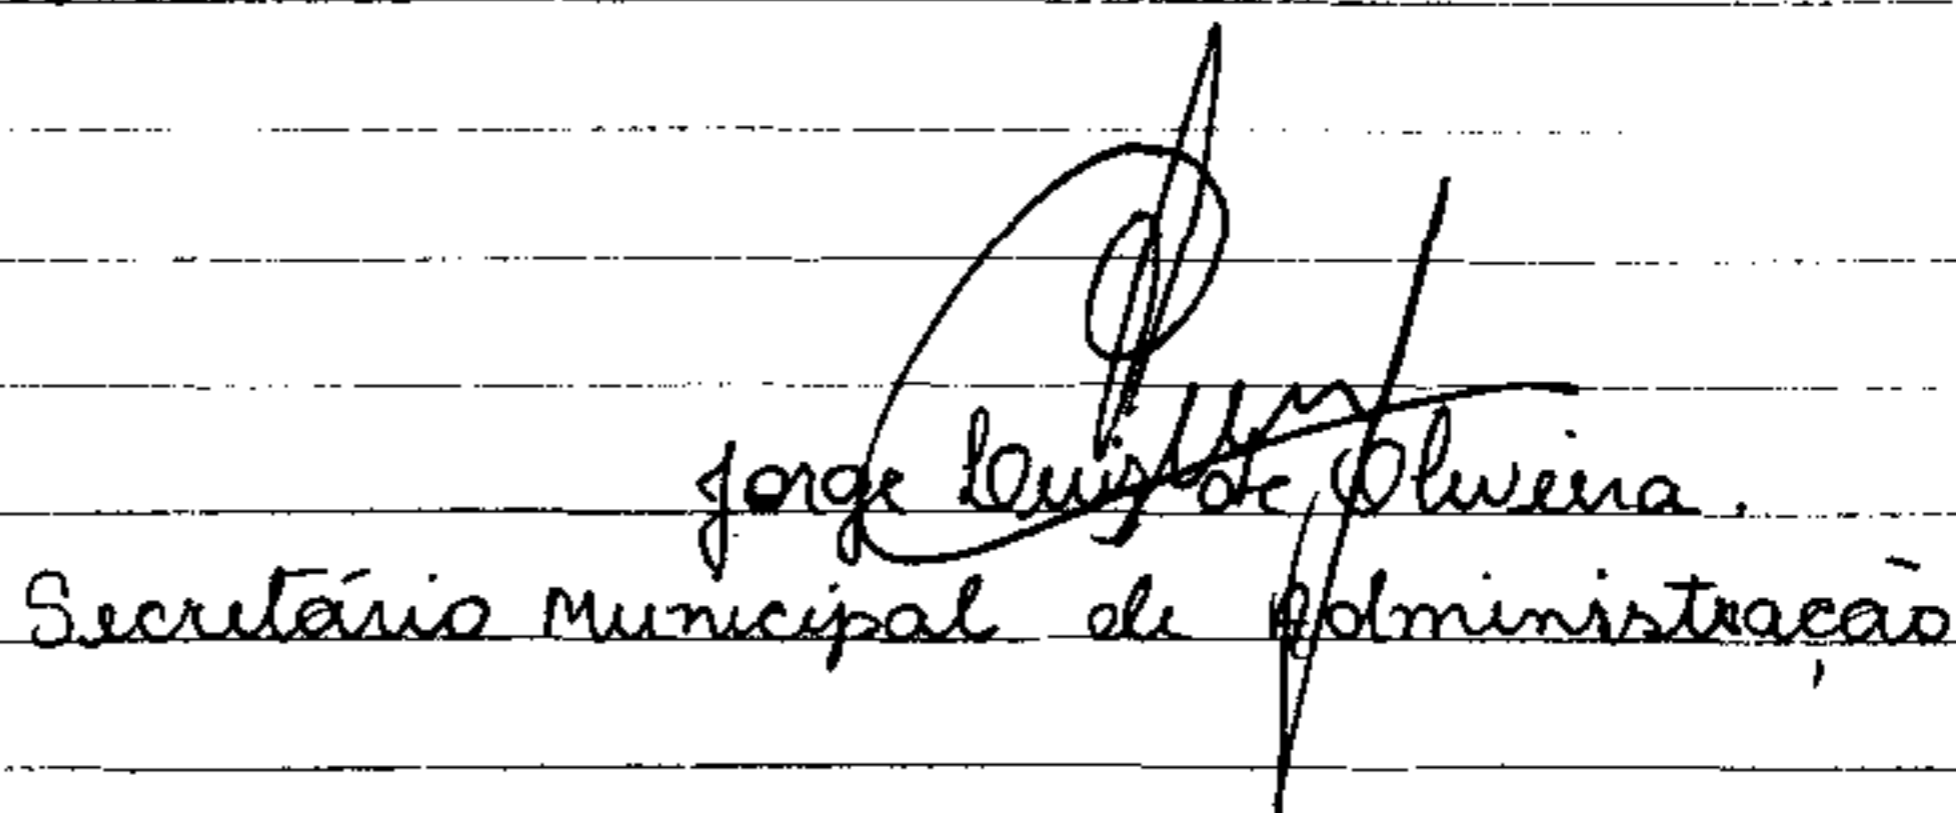 Jorge Luis de Oliveira.
Secretário Municipal de Administração